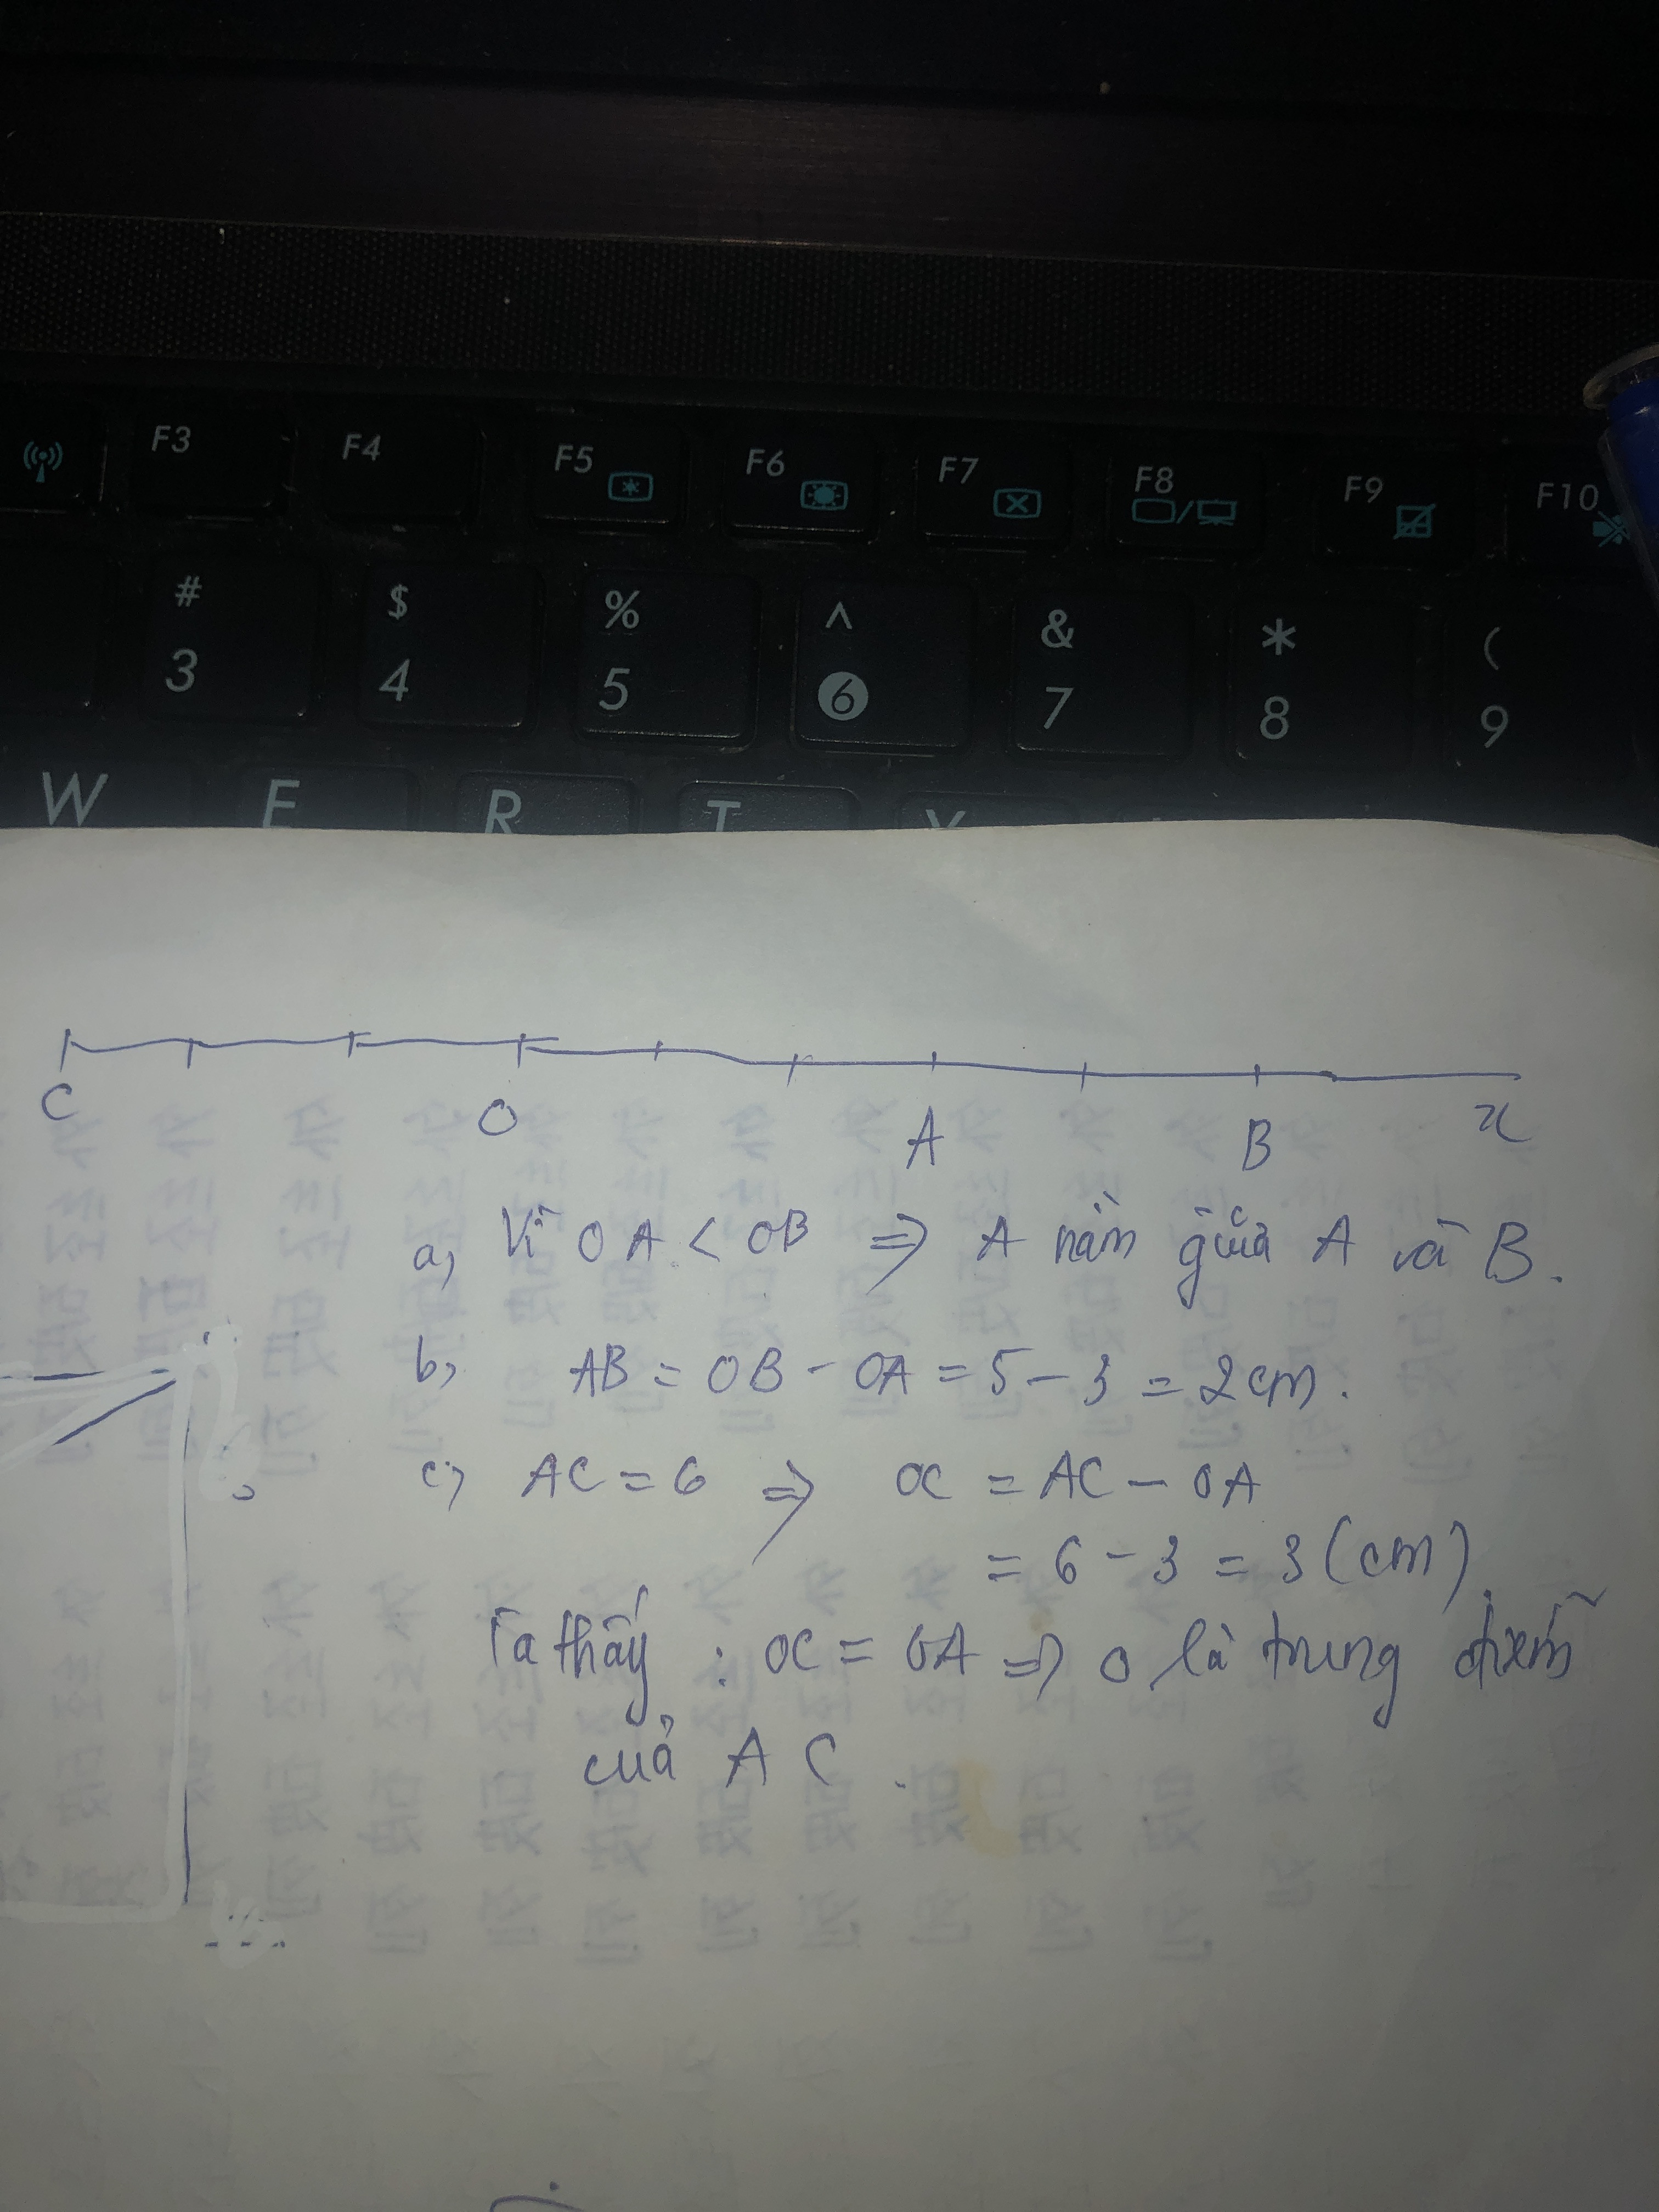 F3 F4 F5 F6 F7 F8 F9 F10
# $ % ^ & * (
3 4 5 6 7 8 9
W E R T Y
C O A B x
a, Vì OA < OB => A nằm giữa A và B.
b, AB = OB - OA = 5 - 3 = 2cm.
c, AC = 6 => OC = AC - OA
= 6 - 3 = 3 (cm).
Ta thấy : OC = OA => O là trung điểm
của AC.